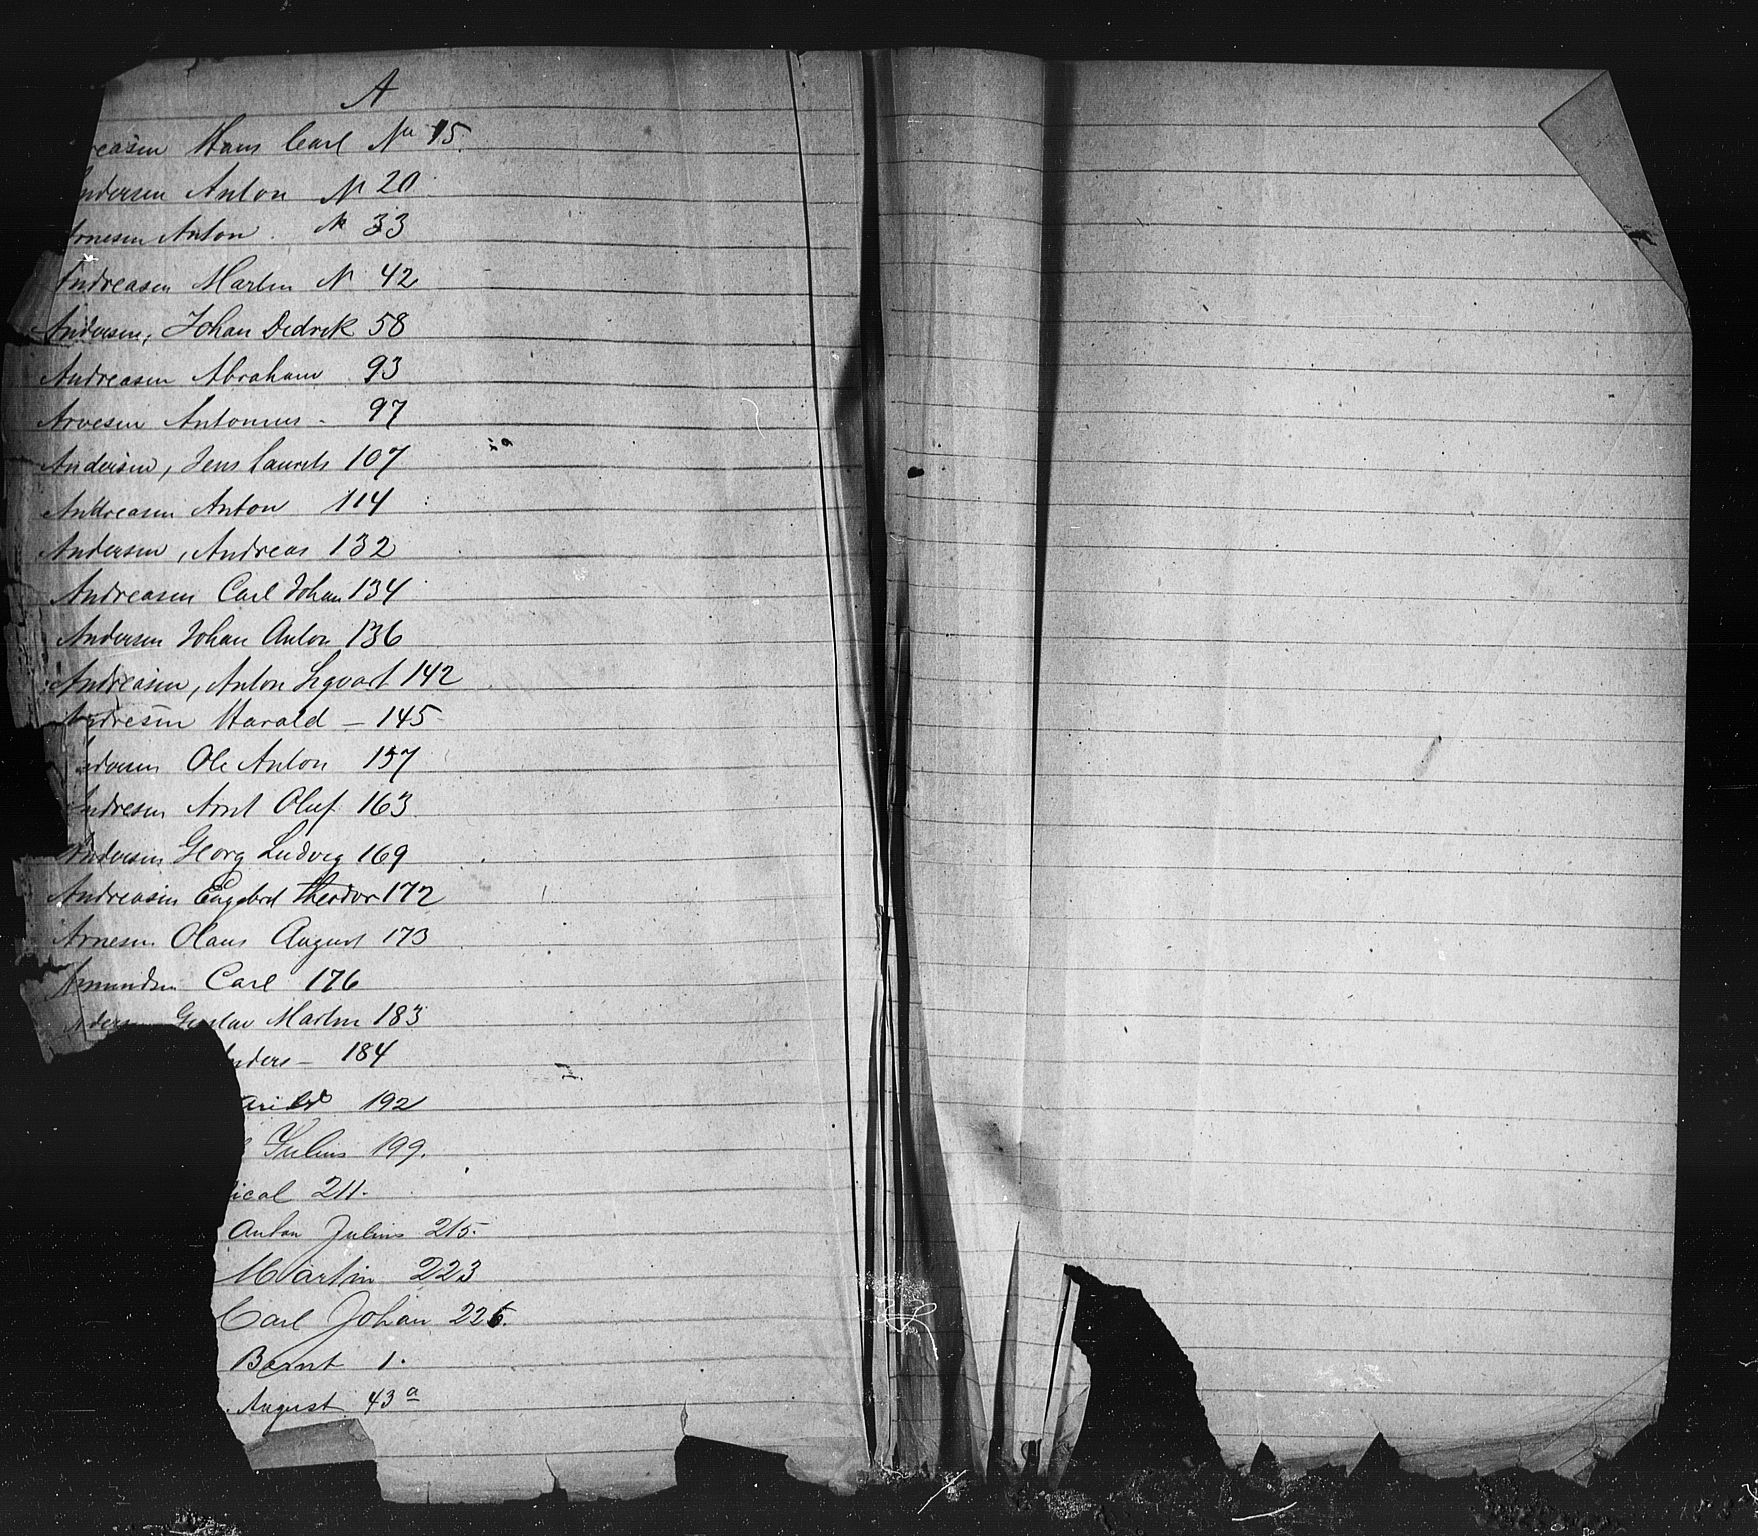 A
reasen Hans Carl No 15.
ndersen Anton N 20
Arnesen Anton. N 33
Andreasen Martin N 42
Andersen, Johan Dedrek 58
Andreasen Abraham 93
Arvesen Antonius - 97
Andersen, Jens Laurets 107
Andreasen Anton 114
Andersen, Andreas 132
Andreasen Carl Johan 134
Andersen Johan Anton 136
Andreasen, Anton Sigvart 142
Andresen Harald - 145
ndersen Ole Anton 157
Andresen Arnt Oluf. 163
Andersen Georg Ludvig 169
Andreasen Engebret Theodor 172
Arnesen Olaus August 173
Amundsen Carl 176
nders Gustav Martin 183
Anders - 184
192
Julius 199.
ical 211.
Anton Julius 215.
Martin 223
Carl Johan 225.
Bernt 1.
August 43 a